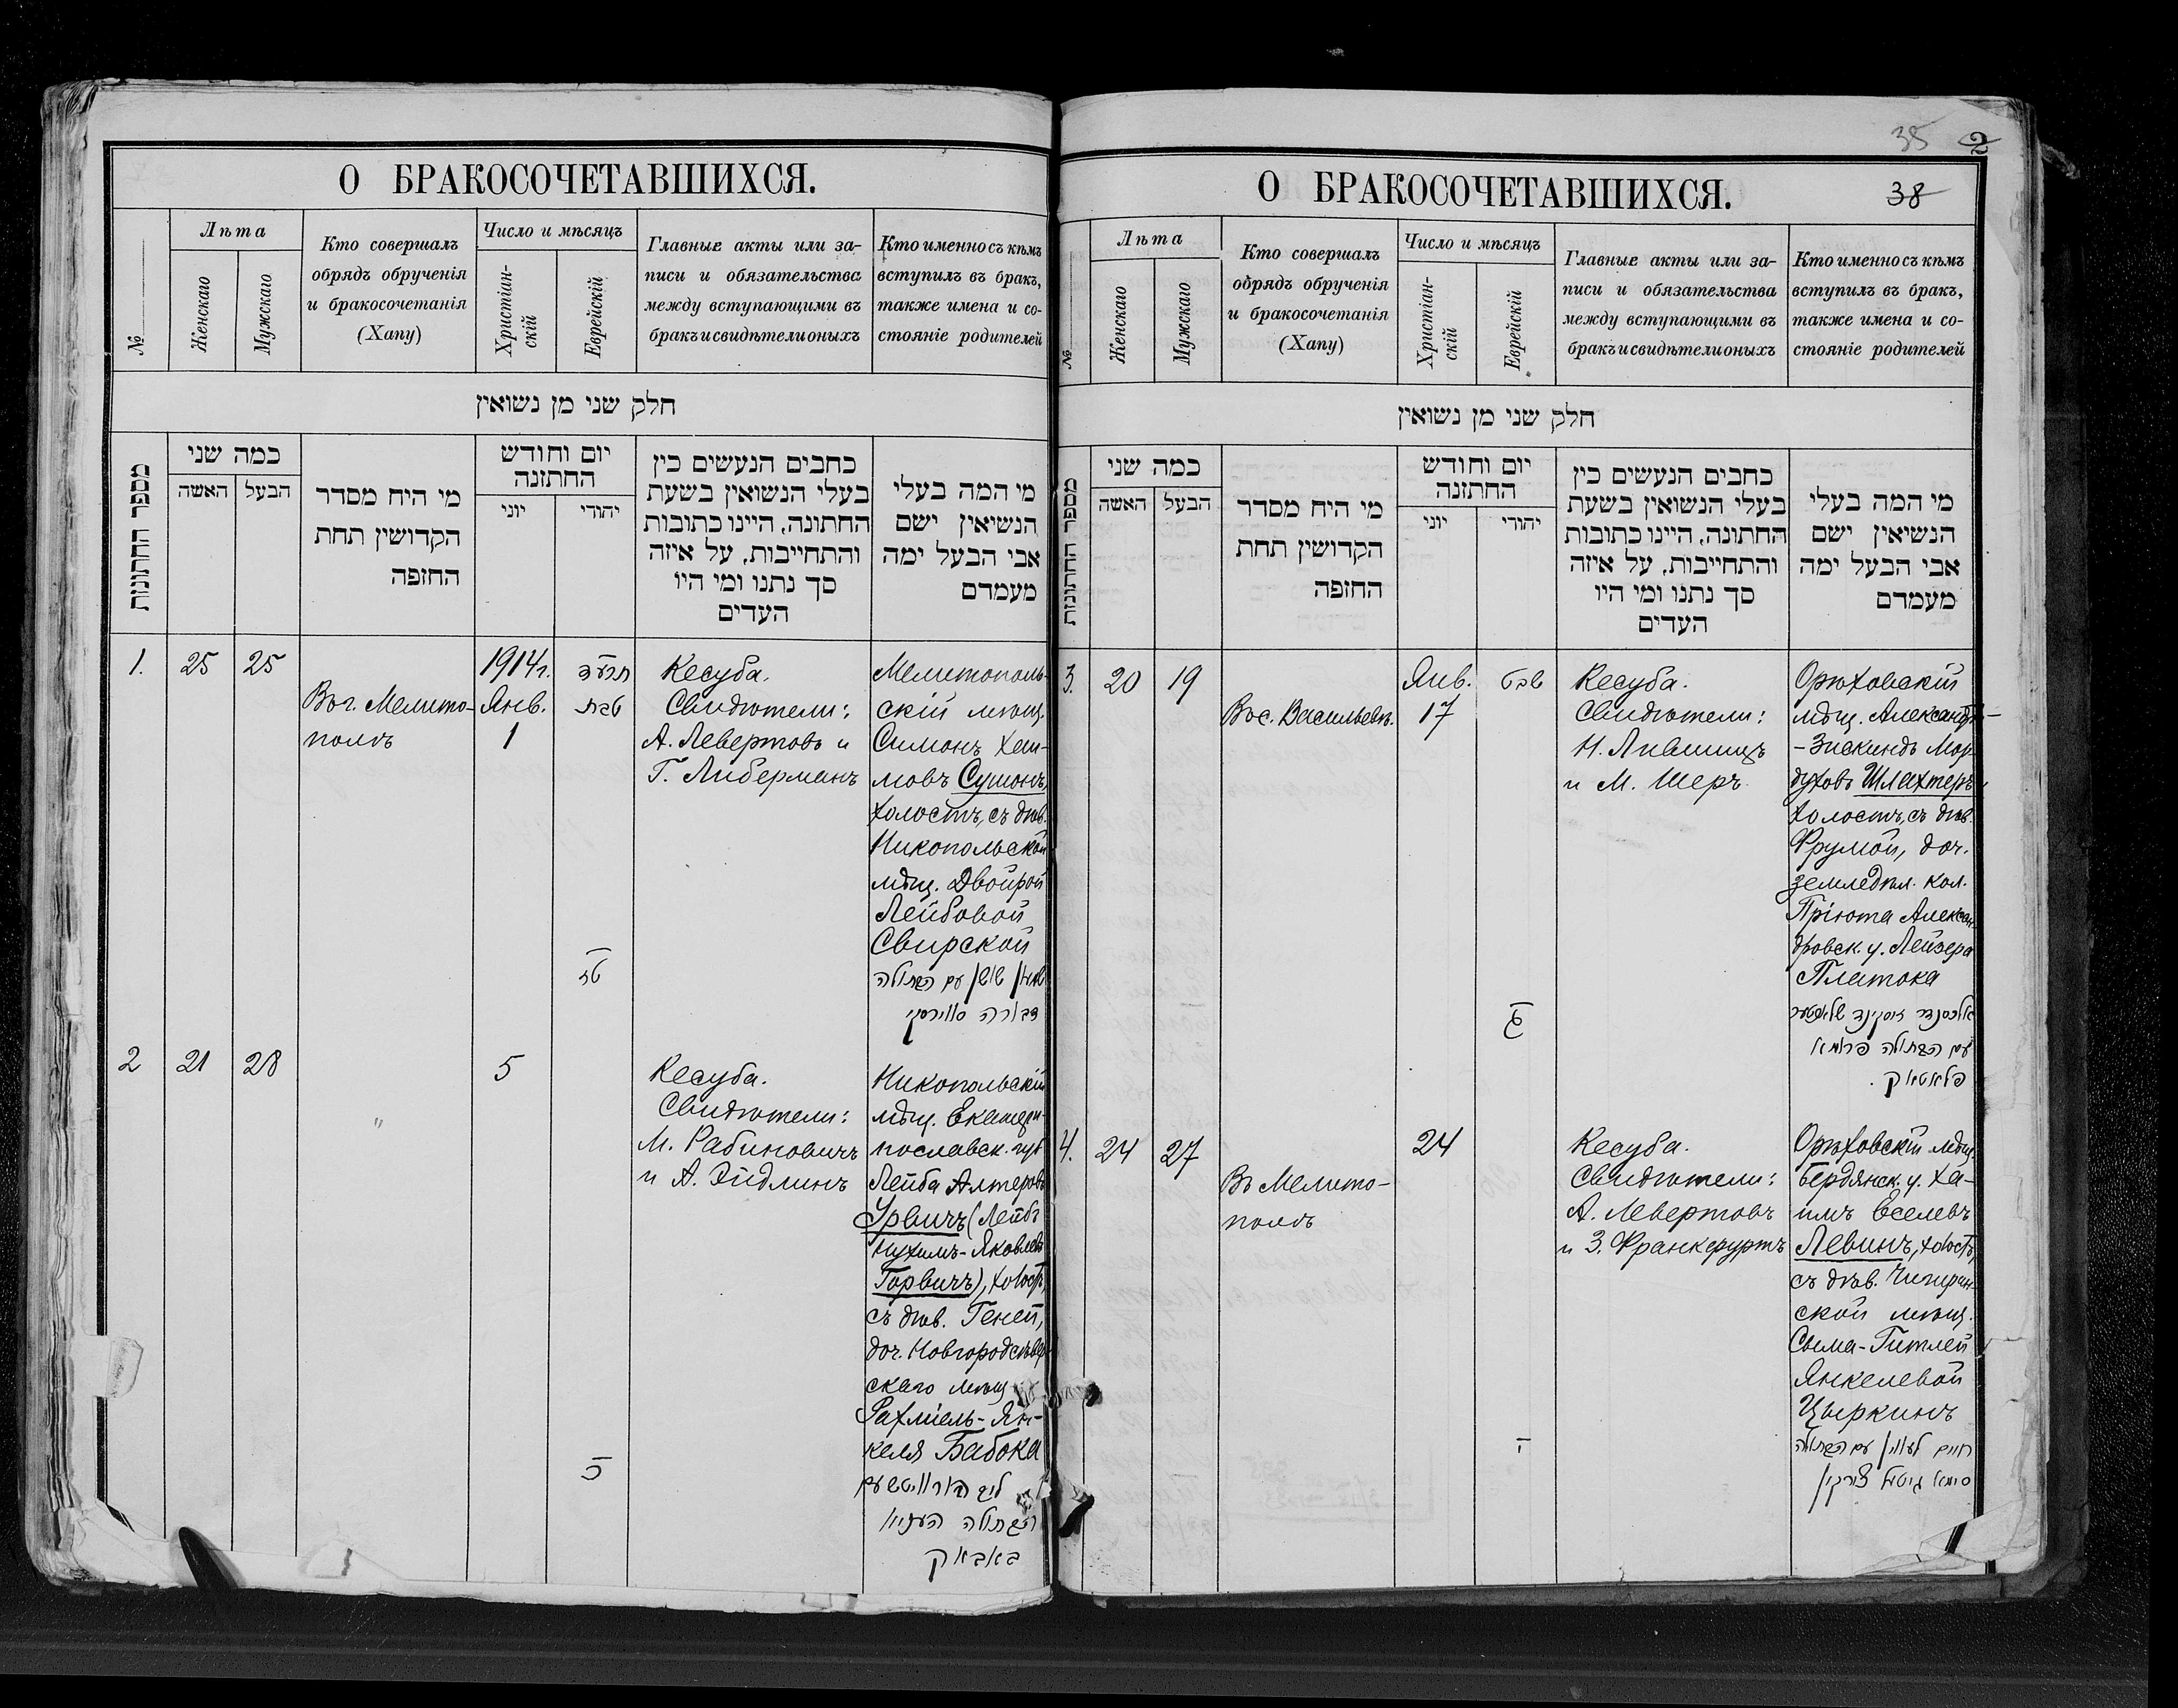 О БРАКОСОЧЕТАВШИХСЯ.
№
Лѣта
Женскаго
Мужскаго
Кто совершалъ
обрядъ обрученія
и бракосочетанія
(Хапу)
Число и мѣсяцъ
Христіан-
скій
Еврейскій
Главные акты или за-
писи и обязательства
между вступающими въ
бракъ и свидѣтели оныхъ
Кто именно съ кѣмъ
вступилъ въ бракъ,
также имена и со-
стояніе родителей
חלק שני מן נשואין
מספר החתונות
כמה שני
האשה
הבעל
מי היח מסדר
הקדושין תחת
החזפה
יום וחודש
החתזנה
יוני
יהודי
כחבים הנעשים כין
בעלי הנשואין בשעת
החתונה, היינו כתובות
והתחייבות, על איזה
סך נתנו ומי היו
העדים
מי המה בעלי
הנשיאין ישם
אבי הבעל ימה
מעמדם
1.
25
25
Въ г. Мелито-
полѣ
1914 г.
Янв.
1
תרע״ד
טבת
טז
Кесуба.
Свидѣтели:
А. Левертовъ и
Г. Либерманъ
Мелитополь-
скій мѣщ.
Симонъ Хаи-
мовъ Сушонъ,
холостъ, съ дѣв.
Никопольской
мѣщ. Двойрой
Лейбовой
Свирской
שמעון שושן עם הבתולה
דבורה סווירסקי
2
21
28
"
5
כ
Кесуба.
Свидѣтели:
М. Рабиновичъ
и А. Эйдлинъ
Никопольскій
мѣщ. Екатери-
нославск. губ
Лейба Алтеровъ
Урвичъ (Лейбъ
Нухимъ-Яковлевъ
Горвичъ), холостъ,
съ дѣв. Геней,
доч. Новгородсѣвер-
скаго мѣщ.
Рахміель-Ян-
келя Бабока
ליב הורוויטש עם
הבתולה העניא
באבאק
35
2
О БРАКОСОЧЕТАВШИХСЯ.
38
№
Лѣта
Женскаго
Мужскаго
Кто совершалъ
обрядъ обрученія
и бракосочетанія
(Хапу)
Число и мѣсяцъ
Христіан-
скій
Еврейскій
Главные акты или за-
писи и обязательства
между вступающими въ
бракъ и свидѣтели оныхъ
Кто именно съ кѣмъ
вступилъ въ бракъ,
также имена и со-
стояніе родителей
חלק שני מן נשואין
מספר החתונות
כמה שני
האשה
הבעל
מי היח מסדר
הקדושין תחת
החזפה
יום וחודש
החתזנה
יוני
יהודי
כחבים הנעשים כין
בעלי הנשואין בשעת
החתונה, היינו כתובות
והתחייבות, על איזה
סך נתנו ומי היו
העדים
מי המה בעלי
הנשיאין ישם
אבי הבעל ימה
מעמדם
3.
20
19
Въ с. Васильевк.
Янв.
17
שבט
Кесуба.
Свидѣтели:
Н. Лившицъ
и М. Шеръ
Орѣховскій
мѣщ. Александръ-
-Зискиндъ Мор-
духовъ Шлахтеръ,
холостъ, съ дѣв.
Фрумой, доч.
земледѣл. кол.
Пріюта Алексан-
дровск. у. Лейзера
Платока
אלכסנדר זיסקינד שלאכטער
עם הבתולה פרומא
פלאטאק.
4.
24
27
Въ Мелито-
полѣ
24
ו
Кесуба.
Свидѣтели:
А. Левертовъ
и З. Франкфуртъ
Орѣховскій мѣщ.
Бердянск. у. Ха-
имъ Еселевъ
Левинъ, холостъ,
съ дѣв. Чигирин-
ской мѣщ.
Сыма-Гитлей
Янкелевой
Цыркинъ
חיים לעווין עם הבתולה
סימא גיטל צירקין